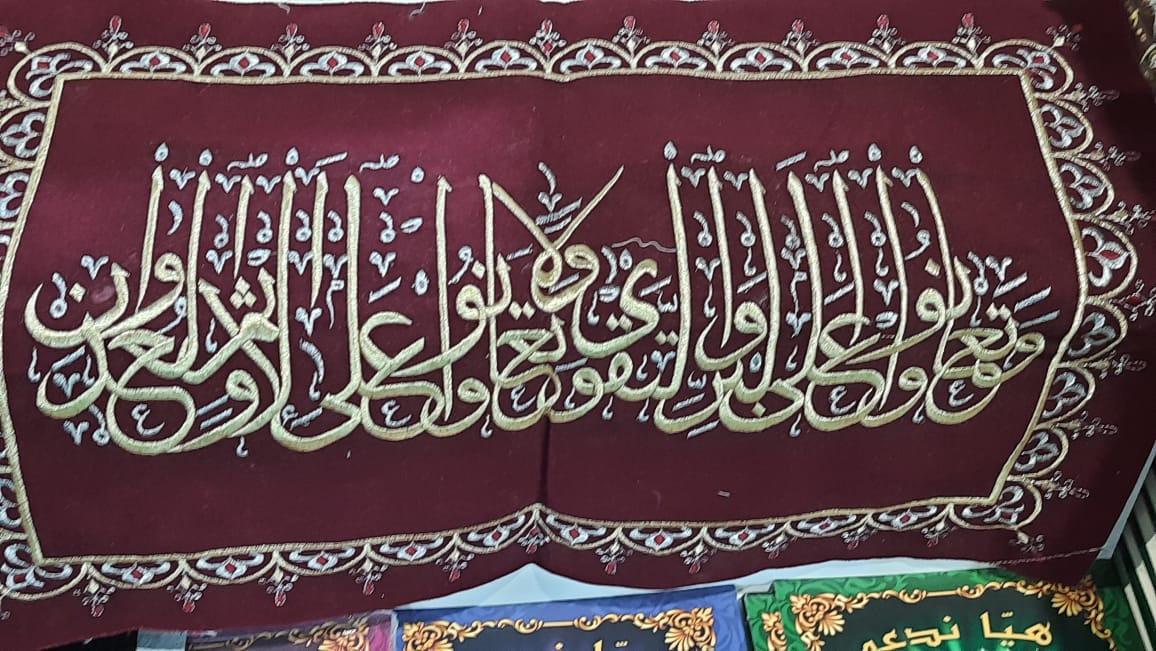 وتعاونوا على البر والتقوى ولا تعاونوا على الإثم والعدوان
هيّا ندعو